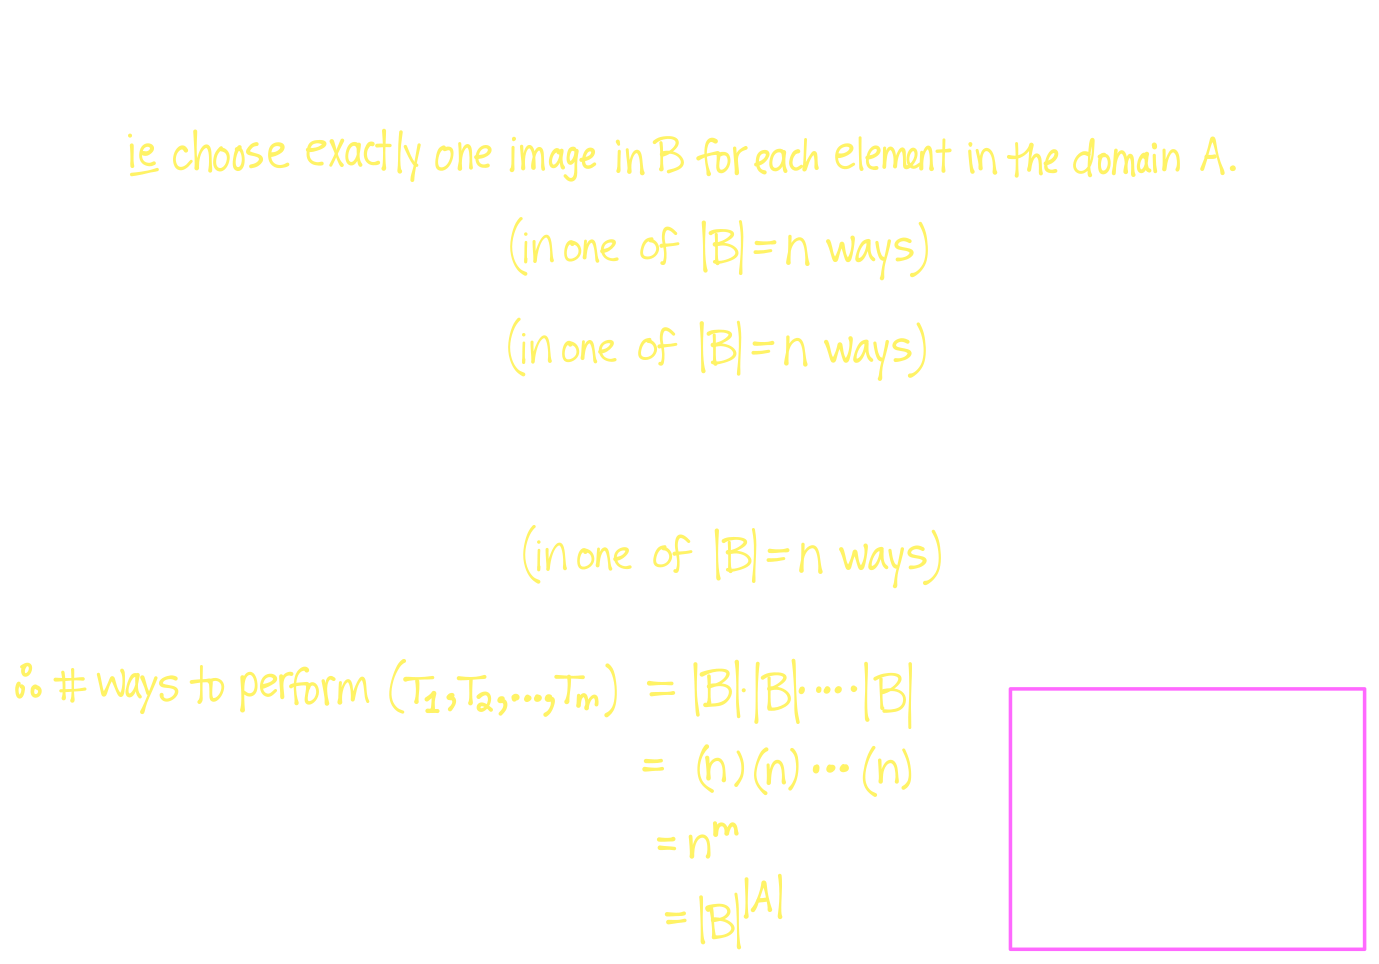 ie choose exactly one image in B for each element in the domain A.
(in one of |B| = n ways)
(in one of |B| = n ways)
(in one of |B| = n ways)
∴ # ways to perform (T₁, T₂, ..., Tₘ) = |B|·|B|·····|B|
= (n)(n)···(n)
= nᵐ
= |B|^|A|